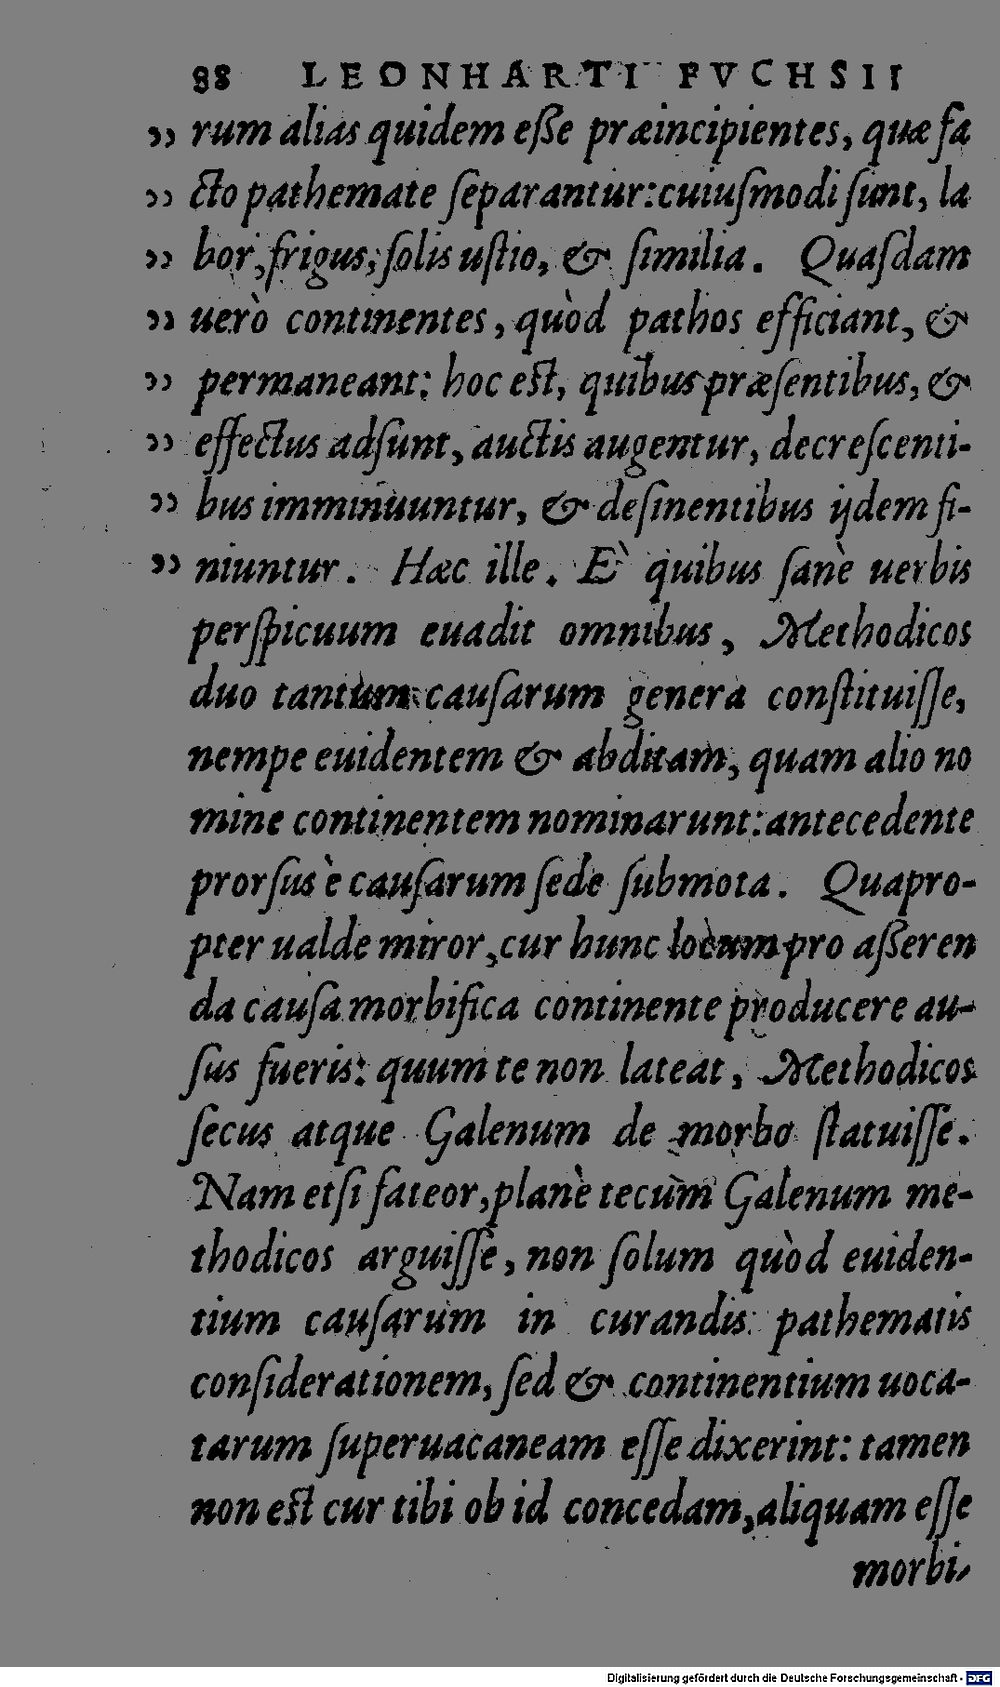 88 LEONHARTI FVCHSII
„ rum alias quidem eſſe præincipientes, quæ fa
„ cto pathemate ſeparantur: cuiuſmodi ſunt, la
„ bor, frigus, ſolis uſtio, & ſimilia. Quaſdam
„ uerò continentes, quòd pathos efficiant, &
„ permaneant: hoc eſt, quibus præſentibus, &
„ effectus adſunt, auctis augentur, decreſcenti-
„ bus imminuuntur, & deſinentibus ijdem fi-
„ niuntur. Hæc ille. E` quibus ſanè uerbis
perſpicuum euadit omnibus, Methodicos
duo tantum cauſarum genera conſtituiſſe,
nempe euidentem & abditam, quam alio no
mine continentem nominarunt: antecedente
prorſus è cauſarum ſede ſubmota. Quapro-
pter ualde miror, cur hunc locum pro aſſeren
da cauſa morbifica continente producere au-
ſus fueris: quum te non lateat, Methodicos
ſecus atque Galenum de morbo ſtatuiſſe.
Nam etſi fateor, planè tecum Galenum me-
thodicos arguiſſe, non ſolum quòd euiden-
tium cauſarum in curandis pathematis
conſiderationem, ſed & continentium uoca-
tarum ſuperuacaneam eſſe dixerint: tamen
non eſt cur tibi ob id concedam, aliquam eſſe
morbi-
Digitalisierung gefördert durch die Deutsche Forschungsgemeinschaft - DFG